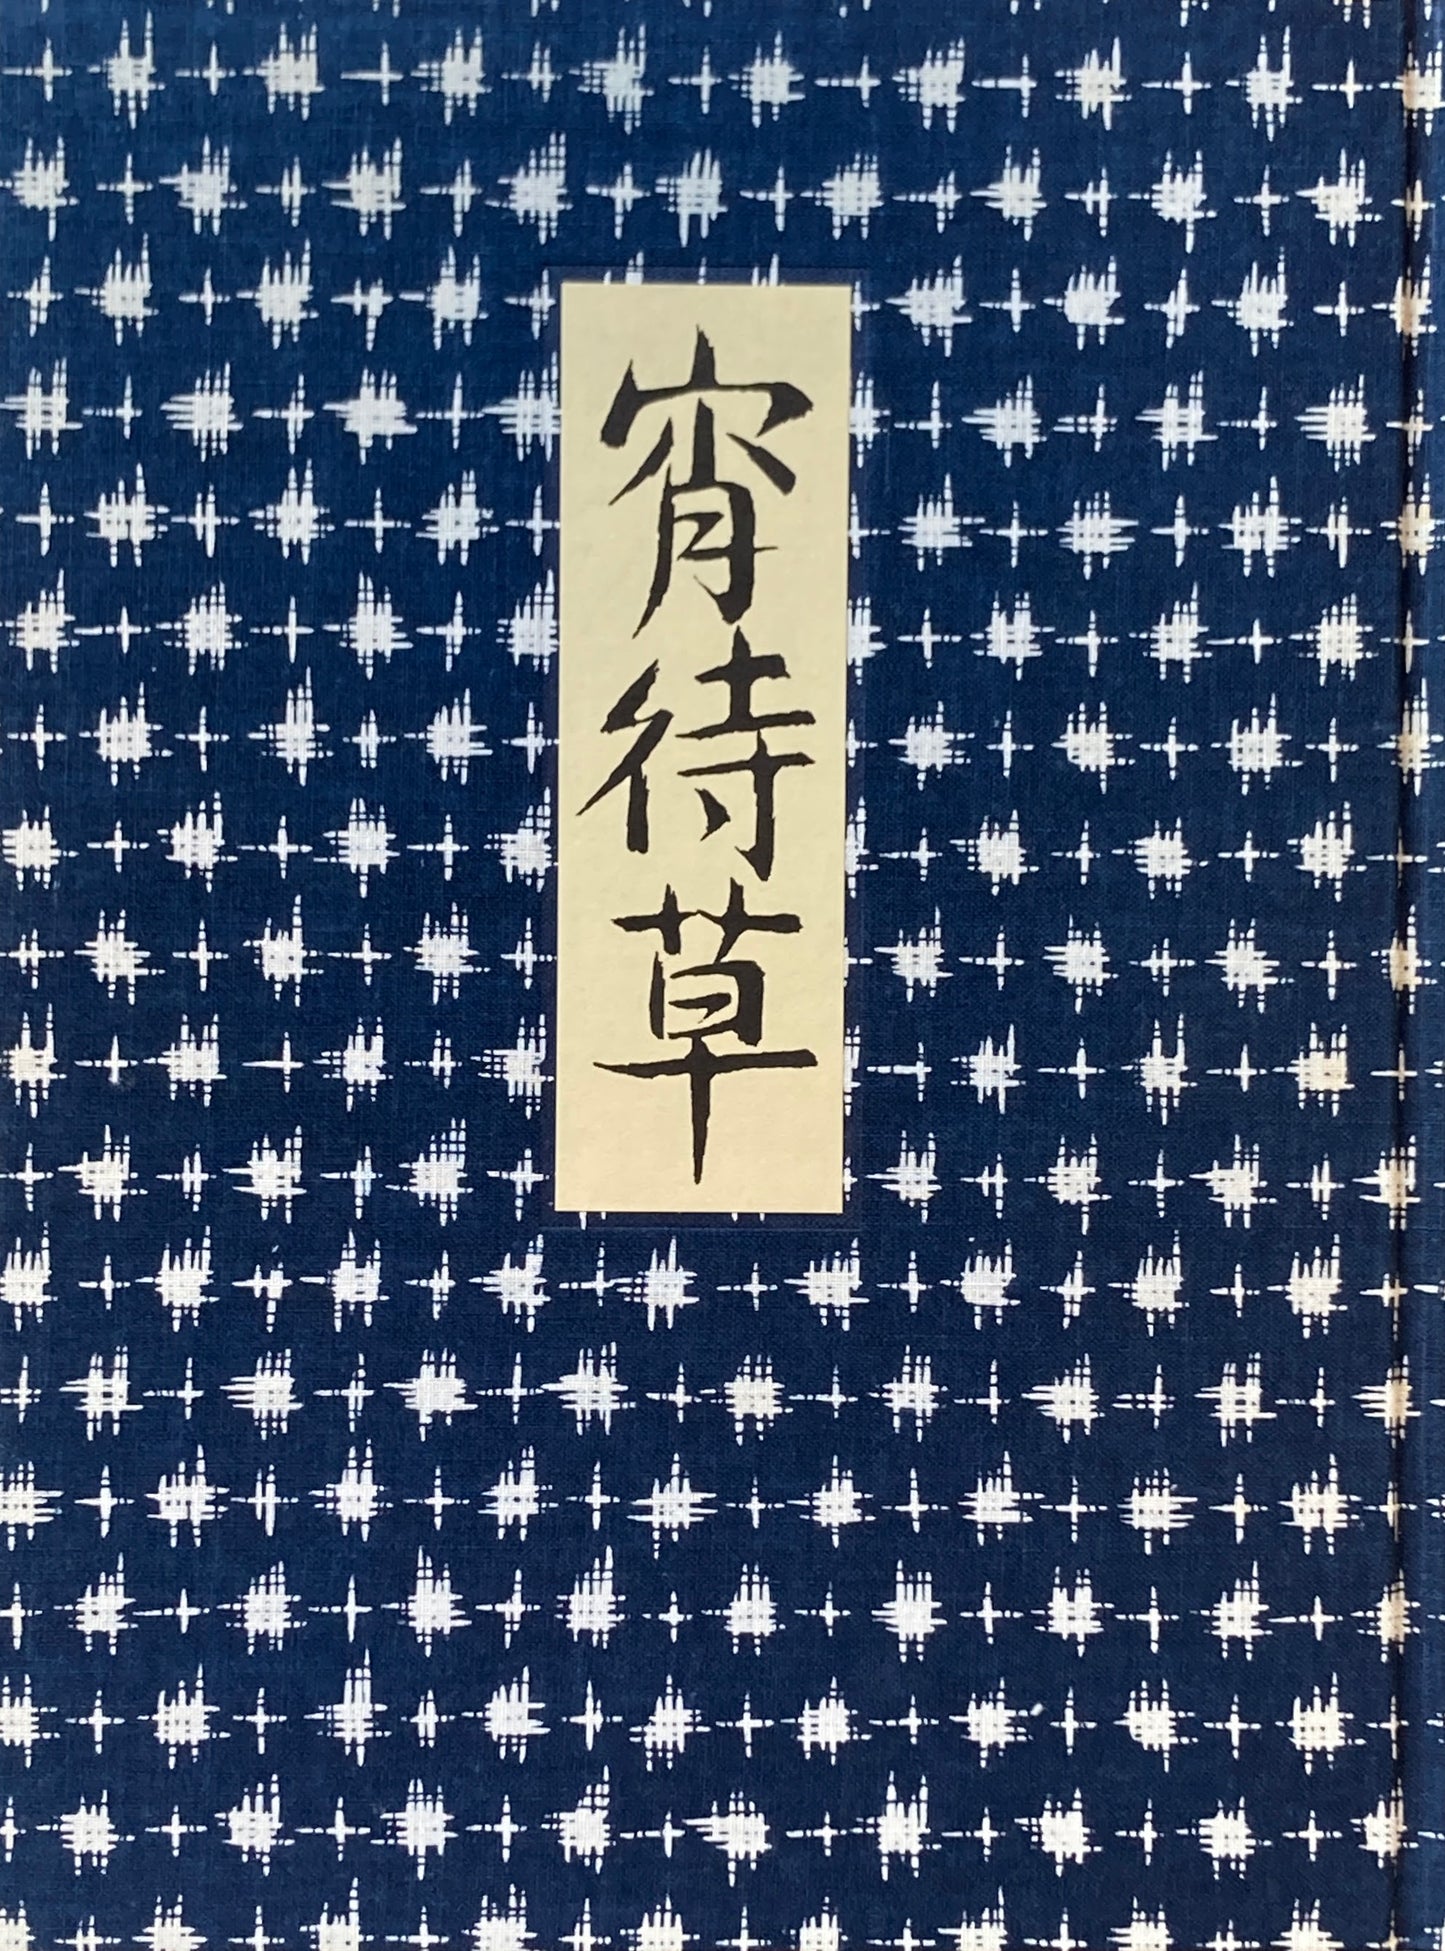 宵待草